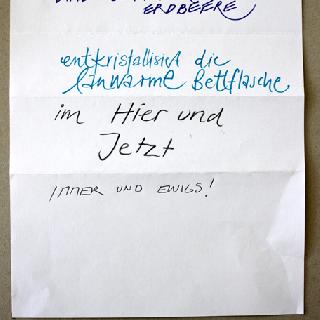 ERDBEERE
entkristallisiert die
lauwarme Bettflasche
im Hier und
Jetzt
IMMER UND EWIGS!